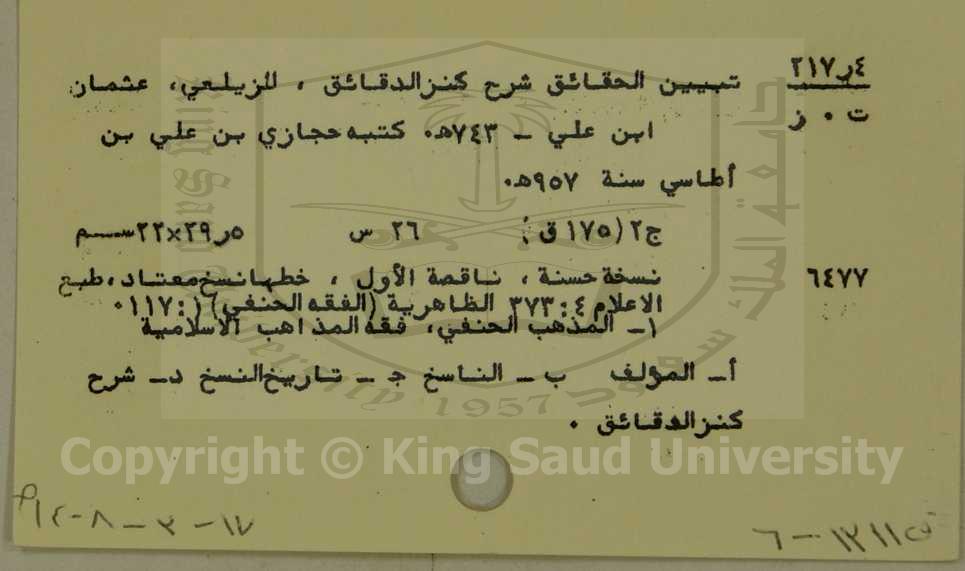 ٢١٧ر٤ تبيين الحقائق شرح كنز الدقائق ، للزيلعي، عثمان
ت ٠ ز ابن علي ــ ٧٤٣هـ٠ كتبه حجازي بن علي بن
أطاسي سنة ٩٥٧هـ٠
ج٢ (١٧٥ ق ؛ ٢٦ س ٢٩ر٥×٢٢ســـم
٦٤٧٧ نسخة حسنة ، ناقصة الأول ، خطها نسخ معتاد، طبع
الاعلام ٤: ٣٧٣ الظاهرية (الفقه الحنفي) ١: ١١٧٠
١ــ المذهب الحنفي، فقه المذاهب الاسلامية
أــ المؤلف ب ــ الناسخ جـ ــ تاريخ النسخ د ــ شرح
كنز الدقائق ٠
Copyright © King Saud University
1957